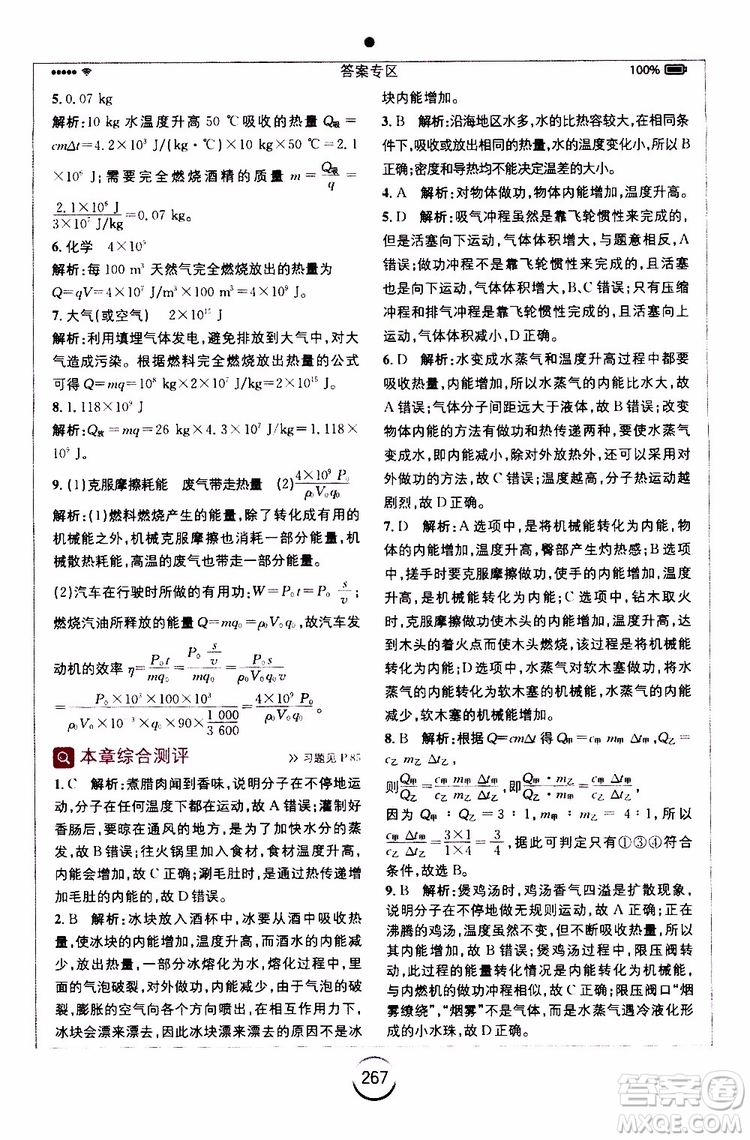 答案专区
100%
5. 0.07 kg
解析:10 kg 水温度升高 50 ℃吸收的热量 Q吸
=cmΔt=4.2×10³ J/(kg·℃)×10 kg×50 ℃=
2.1×10⁶ J;需要完全燃烧酒精的质量 m=Q吸/q=
2.1×10⁶ J/3×10⁷ J/kg=0.07 kg。
6. 化学 4×10⁵
解析:每 100 m³ 天然气完全燃烧放出的热量为
7. 大气(或空气) 2×10¹⁵ J
解析:利用填埋气体发电,避免排放到大气中,对大
气造成污染。根据燃料完全燃烧放出热量的公式
可得 Q=mq=10⁸ kg×2×10⁷ J/kg=2×10¹⁵ J。
8. 1.118×10⁹ J
解析:Q放=mq=26 kg×4.3×10⁷ J/kg=1.118×
10⁹ J。
9. (1)克服摩擦耗能 废气带走热量 (2)4×10⁹ P₀/ρ₀V₀q₀
解析:(1)燃料燃烧产生的能量,除了转化成有用的
机械能之外,机械克服摩擦也消耗一部分能量,机
械散热耗能,高温的废气也带走一部分能量。
(2)汽车在行驶时所做的有用功:W=P₀t=P₀ s/v;
燃烧汽油所释放的能量 Q=mq₀=ρ₀V₀q₀,故汽车发
动机的效率 η=P₀t/mq₀=P₀ s/v/ρ₀V₀q₀=P₀s/ρ₀V₀q₀v
=P₀×10³×100×10³/ρ₀V₀×10⁻³×q₀×90×1 000/3 600=4×10⁹ P₀/ρ₀V₀q₀。
本章综合测评
》习题见 P 85
1. C 解析:煮腊肉闻到香味,说明分子在不停地运
动,在任何温度下都可以发生,故 A 错误;灌制好
香肠后,要晾在通风的地方,是为了加快水分的蒸
发,故 B 错误;往火锅里加入食材,食材温度升高,
内能增大,故 C 正确;涮毛肚时,是通过热传递增
加毛肚的内能,故 D 错误。
2. B 解析:冰块放入酒杯中,冰要从酒中吸收热
量,使冰块的内能增加,温度升高,在升高到一定温
度时,一部分冰熔化为水,熔化过程中,由于气泡的
气泡破裂,对外做功,内能减小。由于气泡的破
裂,膨胀的空气向各个方向喷出,在反作用力下,
冰块会漂来漂去,故冰块漂来漂去的原因不是冰
块内能增加。
3. B 解析:沿海地区水多,水的比热容较大,在相同条
件下,吸收或放出相同的热量,水的温度变化小,所以 B
正确;密度和导热均不能决定温差的大小。
4. A 解析:对物体做功,物体内能增加,温度升高。
5. D 解析:吸气冲程虽然是靠飞轮惯性来完成的,
但是活塞向下运动,气体体积增大,与题意不符,A
错误;做功冲程不是靠飞轮惯性完成的,且活塞
向下运动,气体体积增大,B、C 错误;只有压缩
冲程和排气冲程是靠飞轮惯性完成的,且活塞向上
运动,气体体积减小,D 正确。
6. D 解析:水变成水蒸气和温度升高过程中都要
吸收热量,内能增加,所以水蒸气的内能大,故 A
错误;气体分子间距远大于液体,故 B 错误;改变
物体内能的方法有做功和热传递两种,水变成水蒸气
吸热变成水,除对外放热外,还可以对外做功,
故 C 错误;温度越高,内能越大,分子热运动越
剧烈,故 D 正确。
7. D 解析:A 选项中,是将机械能转化为内能,使
内能增大,温度升高,臀部产生灼热感;B 选项
中,搓手时要克服摩擦做功,使手的内能增大,温度
升高,是机械能转化为内能;C 选项中,钻木取火时
克服摩擦做功使木头的内能增加,温度升高,当达
到木头的着火点而使木头燃烧,该过程是将机械能
转化为内能;D 选项中,水蒸气对软木塞做功,使水
蒸气的内能转化为软木塞的机械能,水蒸气的内能
减少,软木塞的机械能增加。
8. B 解析:根据 Q=cmΔt 可知,c=Q/mΔt,Q甲=c甲m甲Δt甲,Q乙=c乙m乙Δt乙,
则 Q甲/Q乙=c甲/c乙·m甲/m乙·Δt甲/Δt乙,
因为 Q甲∶Q乙=3∶1,m甲∶m乙=4∶1,所以
=3×1/1×4=3/4,据此可判定只有①③④符合
条件,故选 B。
9. B 解析:煲鸡汤时,鸡汤香气四溢是扩散现象,
说明分子在不停地做无规则运动,故 A 错误;在
沸腾的鸡汤中,鸡汤不断吸收热量,所以
其内能增大,故 B 错误;煲鸡汤过程中,限压阀转
动过程的能量转化情况是内能转化为机械能,
与内燃机的做功冲程相似,故 C 错误;限压阀口“烟
雾缭绕”,“烟雾”不是气体,而是水蒸气遇冷液化形
成的小水珠,故 D 正确。
267
答案圈